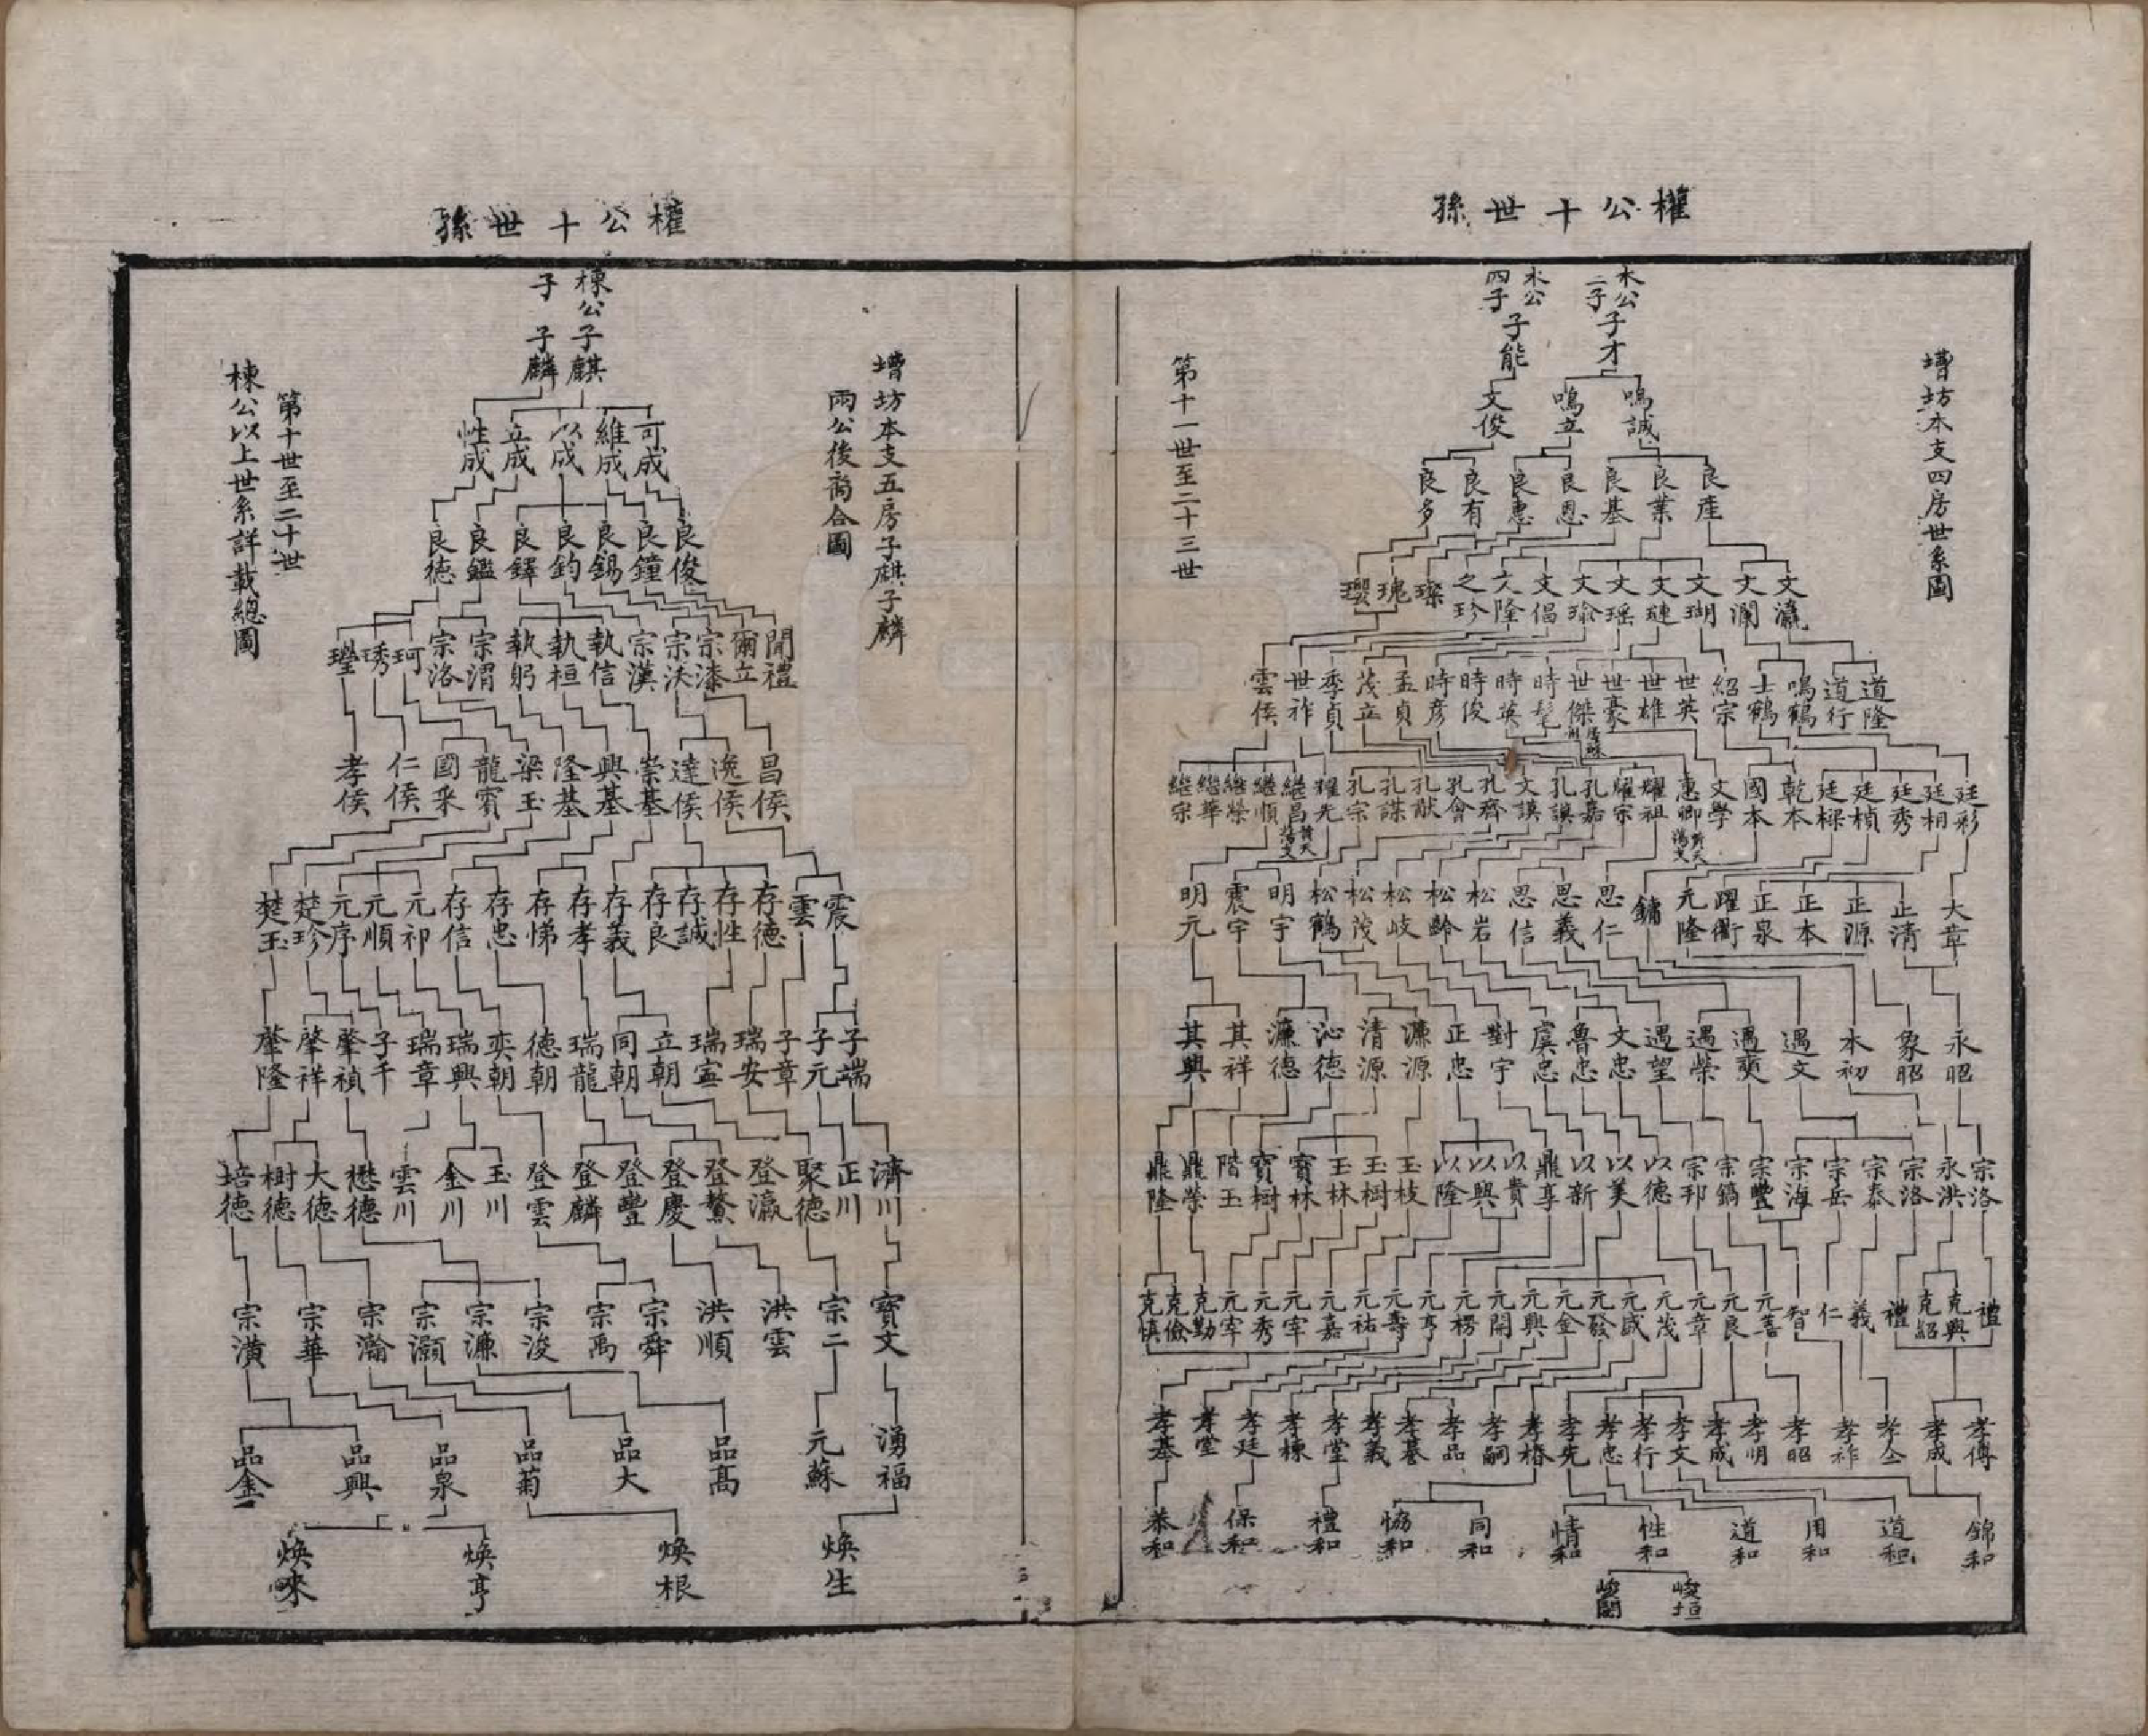 權公十世孫
墰坊本支四房世系圖
第十一世至二十三世
木公二子子才
木公四子子能
鳴誠 鳴立 文俊
良產 良業 良基 良恩 良惠 良有 良多
文瀛 文瀾 文瑚 文璉 文瑶 文瑜 文倡 文隆 之珍 璨 瑰 瓔
道隆 道行 鳴鶴 士鶴 紹宗 世英 世雄 世豪 世傑 時髦 時英 時俊 時彥 孟貞 茂立 季貞 世祚 雲侯
廷彩 廷相 廷秀 廷楨 廷樑 乾本 國本 文學 惠卿 耀祖 耀宗 孔嘉 孔謨 文謨 孔齊 孔會 孔猷 孔謀 孔宗 耀先 繼昌 繼順 繼榮 繼華 繼宗
大章 正清 正源 正本 正泉 躍衢 元隆 鏞 思仁 思義 思信 松岩 松齡 松岐 松茂 松鶴 明宇 震宇 明元
永昭 象昭 本初 遇文 遇奭 遇榮 遇望 文忠 魯忠 虞忠 對宇 正忠 濂源 清源 沁德 濂德 其祥 其興
宗洛 永洪 宗洛 宗泰 宗岳 宗海 宗豐 宗鎬 宗邦 以德 以美 以新 鼎享 以貴 以興 以隆 玉枝 玉樹 玉林 寶林 寶樹 階玉 鼎榮 鼎隆
禮 克興 克紹 禮 義 仁 智 元善 元良 元章 元茂 元盛 元發 元金 元興 元開 元楞 元亨 元壽 元祐 元嘉 元宰 元秀 元宰 克勤 克儉 克慎
孝傳 孝成 孝全 孝祚 孝昭 孝明 孝成 孝文 孝行 孝忠 孝先 孝椿 孝嗣 孝品 孝基 孝義 孝堂 孝棟 孝廷 孝堂 孝基
錦和 道和 用和 道和 性和 情和 同和 協和 禮和 保和 恭和
峻垣 峻閣
權公十世孫
墰坊本支五房子麒子麟
兩公後裔合圖
棟公子子麒 子麟
可成 維成 以成 立成 性成
良俊 良鐘 良錫 良鈞 良鐸 良鑑 良德
聞禮 爾立 宗漆 宗沃 宗漢 執信 執桓 執躬 宗渭 宗洛 珂 琇 瓘
昌侯 逸侯 達侯 崇基 興基 隆基 梁玉 龍賓 國采 仁侯 孝侯
震 雲 存德 存性 存誠 存良 存義 存孝 存悌 存忠 存信 元祁 元順 元序 楚珍 楚玉
子端 子元 子章 瑞安 瑞寍 立朝 同朝 瑞龍 德朝 奕朝 瑞興 瑞章 子千 肇禎 肇祥 肇隆
濟川 正川 聚德 登瀛 登鰲 登慶 登豐 登麟 登雲 玉川 金川 雲川 懋德 大德 樹德 培德
寶文 宗二 洪雲 洪順 宗舜 宗禹 宗浚 宗濂 宗灝 宗瀚 宗華 宗潢
湧福 元蘇 品高 品大 品菊 品泉 品興 品金
煥生 煥根 煥亨 煥來
第十世至二十世
棟公以上世系詳載總圖